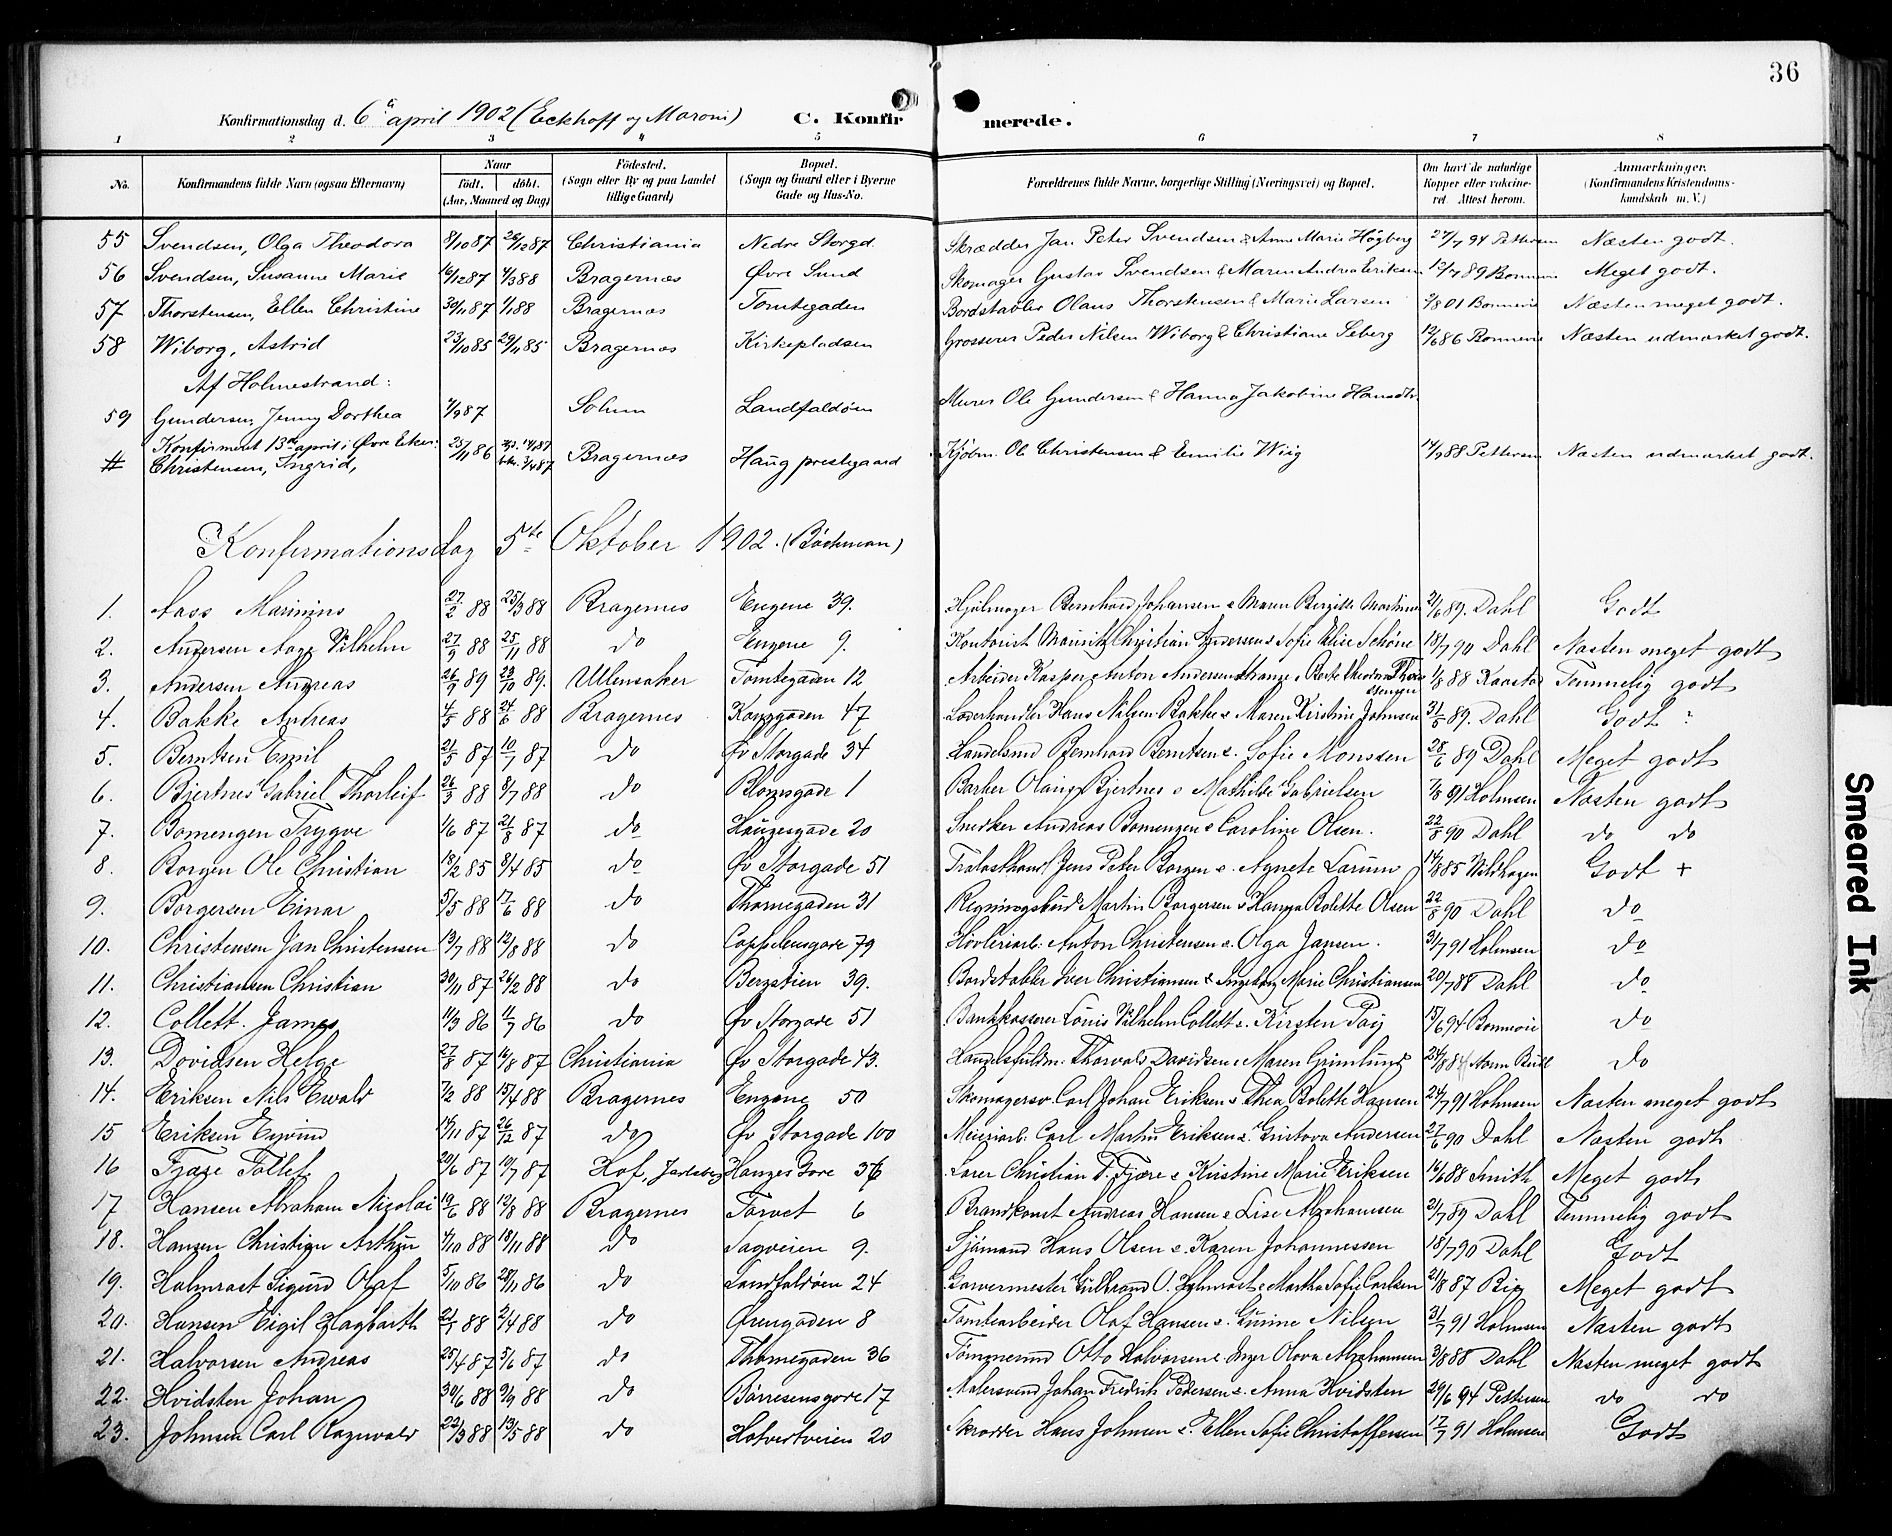 36
Konfirmationsdag d. 6 april 1902 (Eckhoff og Maroni) C. Konfirmerede.
1 2 3 4 5 6 7 8
No. Konfirmandens fulde Navn (ogsaa Efternavn) Naar født. døbt. (Aar, Maaned og Dag) Fødested. (Sogn eller By og paa Landet tillige Gaard) Bopæl. (Sogn og Gaard eller i Byerne Gade og Hus-No. Forældrenes fulde Navne, borgerlige Stilling (Næringsvei) og Bopæl. Om havt de naturlige Kopper eller vakcineret. Attest herom. Anmærkninger. (Konfirmandens Kristendomskundskab m. V.)
55 Svendsen, Olga Theodora 8/10 87 26/12 87 Christiania Nedre Storgd. Skrædder Jan Peter Svendsen & Anne Marie Högberg 27/7 94 Pettersen Næsten godt.
56 Svendsen, Susanne Marie 16/12 87 4/3 88 Bragernæs Øvre Sund Skomager Gustav Svendsen & Maren Andrea Eriksen 12/7 89 Bonnevie Meget godt.
57 Thorstensen, Ellen Christine 30/11 87 1/1 88 Bragernæs Tomtegaden Bordstabler Olaus Thorstensen & Marie Larsen 2/8 01 Bonnevie Næsten meget godt.
58 Wiborg, Astrid 23/10 85 29/11 85 Bragernæs Kirkepladsen Grosserer Peder Nilsen Wiborg & Christiane Seberg 12/6 86 Bonnevie Næsten udmærket godt.
Af Holmestrand:
59 Gundersen, Jenny Dorthea 4/9 87 Solum Landfaldøen Murer Ole Gundersen & Hanna Jakobine Hansdtr.
Konfirmeret 13de april i Øvre Eker:
# Christensen, Ingrid, 25/11 86 Bragernæs Haug prestegaard Kjöbm. Ole Christensen & Emilie Wiig 14/9 88 Pettersen Næsten udmærket godt.
Konfirmationsdag 5te Oktober 1902. (Bödtman)
1. Aass Marinius 27/2 88 25/3 88 Bragernes Engene 39. Hjulmager Bernhard Johansen & Maren Birgitte Martinsen 21/6 89. Dahl Godt
2. Andersen Aage Vilhelm 27/9 88 25/11 88 do Engene 9. Kontorist Mauritz Christian Andersen & Sofie Elise Schöne 18/7 90 Dahl Næsten meget godt
3. Andersen Andreas 26/9 89 23/10 89. Ullensaker Tomtegaden 12 Arbeider Kasper Anton Andersen 1/8 88 Kaastad Temmelig godt
4. Bakke Andreas 4/5 88 24/6 88 Bragernes Konggaden 47 Læderhandler Hans Nilsen Bakke & Maren Kirstine Johnsen 31/5 89. Dahl Godt
5. Berntsen Emil 21/5 87 10/7 87 do Øv Storgade 34 Handelsmd Bernhard Berntsen & Sofie Monssen 28/6 89 Dahl Meget godt
6. Bjertnes Gabriel Thorleif 26/3 88 8/7 88 do Blomsgade 1 Barber Olaus Bjertnes & Mathilde Gabrielsen 7/8 91 Holmsen Næsten godt
7. Bomengen Trygve 1/6 87 21/8 87 do Haugesgade 20 Snedker Andreas Bomengen & Caroline Olsen. 22/8 90 Dahl do do
8. Borgen Ole Christian 18/2 85 8/4 85 do Øv Storgade 51 Trælasthandl Jens Peter Borgen & Agnete Larum 14/8 85 Wildhagen Godt +
9. Borgersen Einar 5/5 88 17/6 88 do Thornegaden 31 Regningsbud Martin Borgersen & Hanna Bolette Olsen 22/8 90 Dahl do
10. Christensen Jan Christensen 13/7 88 12/8 88 do Cappelensgade 79 Høvleriarb. Anton Christensen & Olga Jansen. 31/7 91 Holmsen do
11. Christiansen Christian 30/11 87 26/2 88 do Bergstien 39. Bordstabler Iver Christiansen & Ingeborg Marie Christiansen 20/7 88 Dahl do
12. Collett. James 11/3 86 11/7 86 do Øv Storgade 51 Bankkasserer Louis Vilhelm Collett & Kirsten Paÿ 15/6 94 Bonnevie do
13. Davidsen Helge 27/8 87 14/8 87 Christiania Øv Storgade 43. Handelsfuldm. Thorvald Davidsen & Maren Grimlund do
14. Eriksen Nils Ewald 7/2 88 15/4 88 Bragernes Engene 50 Skomagersv. Carl Johan Eriksen & Thea Bolette Hansen 24/7 91 Holmsen Næsten meget godt
15 Eriksen Eyvind 14/11 87 26/12 87 do Øv Storgade 100 Carl Martin Eriksen & Gustava Andersen 27/6 90 Dahl Næsten godt
16 Fjære Tollef 20/6 87 10/7 87 Hof, Jarlsberg Hauges Gade 36 Lærer Christian T. Fjære & Kirstine Marie Eriksen 16/6 88 Smith Meget godt
17 Hansen Abraham Nicolai 19/6 88 12/8 88 Bragernes Torvet 6 Brandkonst Andreas Hansen & Lise Abrahamsen 21/7 89 Dahl Temmelig godt
18. Hansen Christian Arthur 4/10 88 18/11 88 do Sagveien 9. Sjömand Hans Olsen & Karen Johannessen 18/7 90 Dahl Godt
19. Halmrast Sigurd Olaf 5/10 86 28/11 86 do Landfaldøen 24 Garvermester Gulbrand O. Halmrast & Martha Sofie Carlsen 21/8 87 Meget godt
20. Hansen Eigil Hagbarth 21/1 88 2/4 88 do Ørengaden 8 Tomtearbeider Olaf Hansen & Gurine Nilsen 31/7 91 Holmsen Næsten godt
21. Halvorsen Andreas 25/4 87 5/6 87 do Thornegaden 36 Tömmermd Otto Halvorsen & Inger Olava Abrahamsen 3/8 88 Dahl Næsten meget godt
22. Hvidsten Johan 30/6 88 9/9 88 do Børresensgade 17 Malersvend Johan Fredrik Pedersen & Anna Hvidsten 29/6 94 Pettersen do do
23. Johnsen Carl Ragnvald 22/3 88 13/5 88 do Hotvetveien 20 Skrædder Hans Johnsen & Ellen Sofie Christoffersen 17/7 91 Holmsen Godt
Smeared Ink